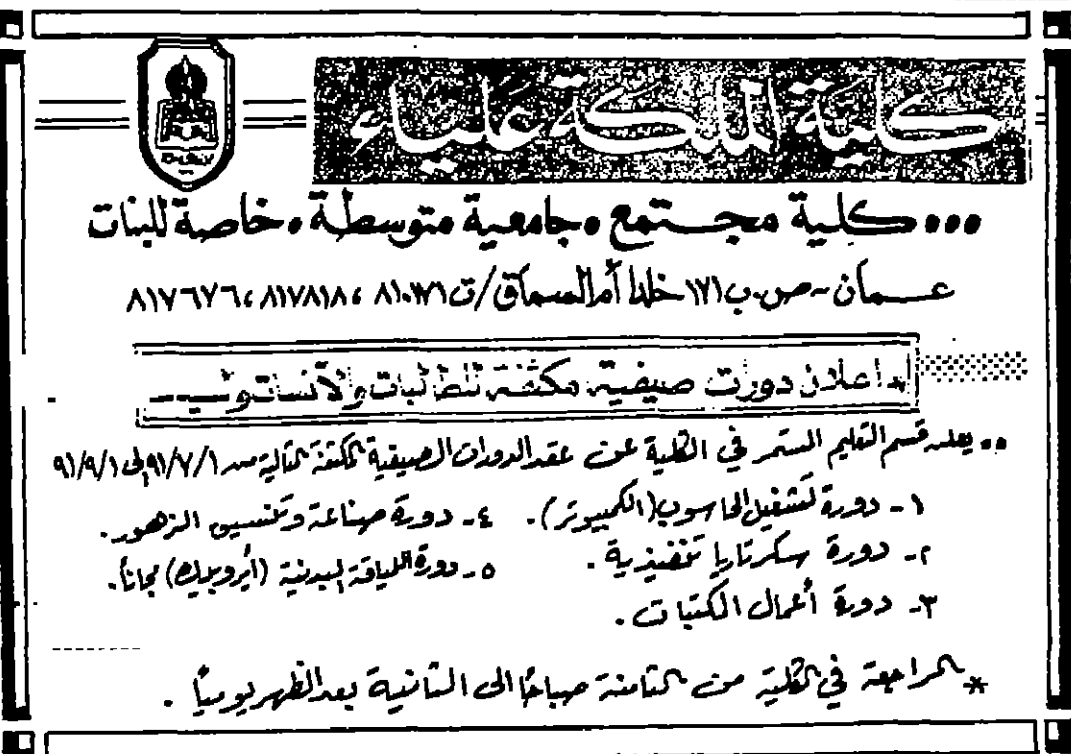 كلية الملكة علياء
كلية مجتمع، جامعية متوسطة، خاصة للبنات
عمان - ص.ب ١٧١ خلدا أم السماق / ت ٨١٠٣٧١، ٨١٧٨١٨، ٨١٧٦٧٦
اعلان دورت صيفية مكثفة للطالبات والآنسات
يعلن قسم التعليم المستمر في الكلية عن عقد الدورات الصيفية المكثفة التالية من ٩١/٧/١ إلى ٩١/٩/١
١- دورة تشغيل الحاسوب (الكمبيوتر).
٢- دورة سكرتاريا تنفيذية.
٣- دورة أعمال المكتبات.
٤- دورة صناعة وتنسيق الزهور.
٥- دورة اللياقة البدنية (أيروبيك) مجاناً.
* المراجعة في الكلية من الثامنة صباحاً الى الثانية بعد الظهر يومياً.